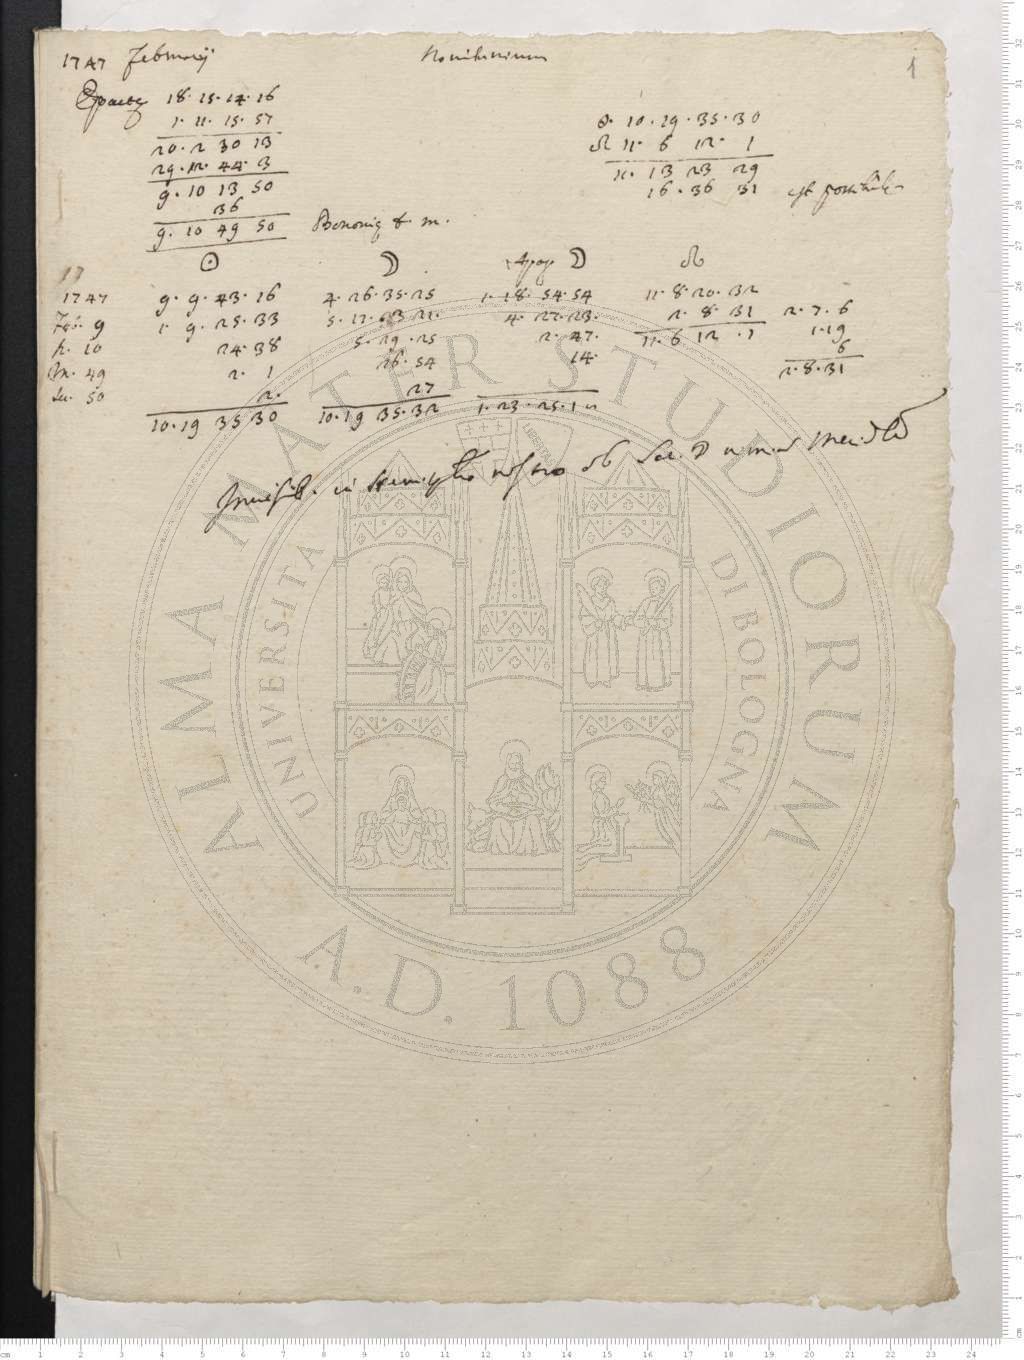 1747 Februarij Novilunium 1
Epactę 18. 15. 14. 16
1. 11. 15. 57
20. 2 30 13
29. 12. 44. 3
9. 10 13 50
36
9. 10 49 50 Bononię t. m.
☉. 10. 19. 35. 30
☊ 11. 6 12. 1
11. 13 23 29
16. 36 31 est possibilis
☉ ☽ Apog ☽ ☊
1747 9. 9. 43. 16 4. 26. 35. 25 1. 18. 54. 54 11. 8. 20. 32
Feb. 9 1. 9. 25. 33 5. 17. 23 21. 4. 27. 23. 2. 8. 31 2. 7. 6
h. 10 24. 38 5. 29. 25 2. 47. 11. 6 12. 1 1. 19
m. 49 2. 1 26. 54 14. 6
se. 50 2. 27 2. 8. 31
10. 19 35 30 10. 19 35. 32 1. 23. 25. 12
Invisib. in hemisphęrio nostro ob Lat. ☽
ALMA MATER STUDIORUM
UNIVERSITA DI BOLOGNA
LIBERTAS
A.D. 1088